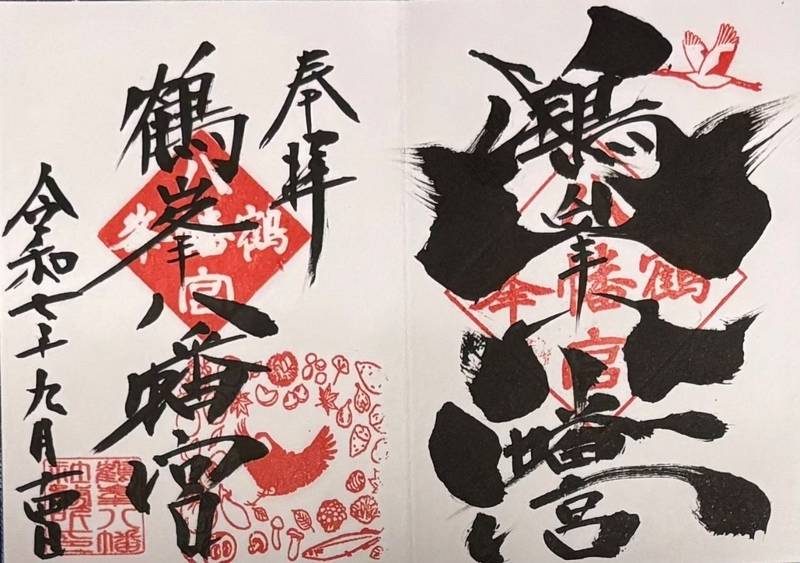 鶴峯八幡宮
鶴峯
八幡宮
奉拝
鶴峯八幡宮
鶴峯
八幡宮
令和七年九月吉日
鶴峯八幡